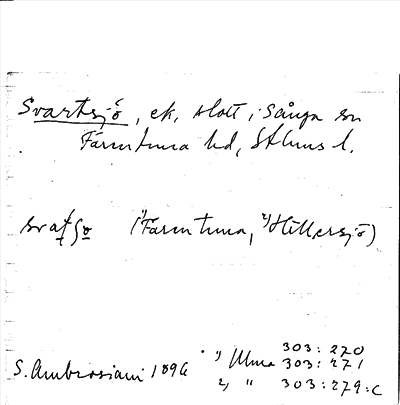 Svartsjö, ek, slott, i Sånga sn
Färentuna hd, Sthlms l.
svatsö (¹⁾Färentuna, ²⁾Hillersjö)
303:270
S. Ambrosiani 1896 ¹⁾ Ulma 303:271
²⁾ " 303:279:c